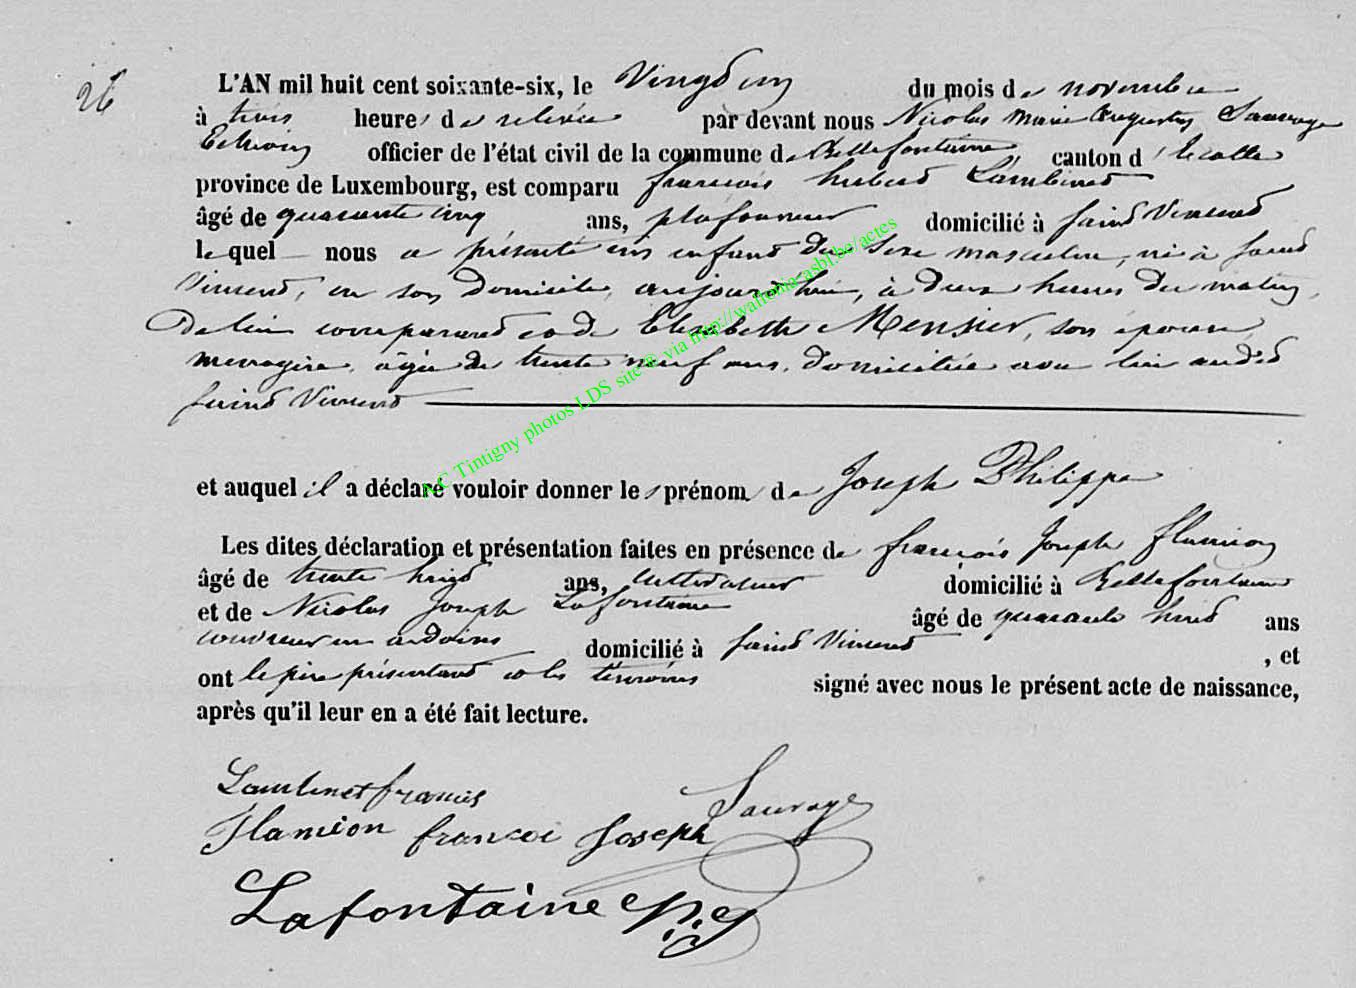 26
L'AN mil huit cent soixante-six, le Vingt un du mois de novembre
à trois heures de relevée par devant nous Nicolas Marie Augustin Sauvage
Echevin officier de l'état civil de la commune de Bellefontaine canton d'
province de Luxembourg, est comparu françois hubert Lambinet
âgé de quarante cinq ans, plafonneur domicilié à Saint Vincent
lequel nous a présenté un enfant du sexe masculin, né à Saint
Vincent, en son domicile, aujourd'hui, à deux heures du matin,
de lui comparant et de Elisabeth Mensier, son épouse
menagère, âgée de trente neuf ans, domiciliée avec lui audit
Saint Vincent
et auquel il a déclaré vouloir donner les prénoms de Joseph Philippe
Les dites déclaration et présentation faites en présence de françois Joseph flamion
âgé de trente huit ans, cultivateur domicilié à Bellefontaine
et de Nicolas Joseph Lafontaine âgé de quarante huit ans
couvreur en ardoises domicilié à Saint Vincent , et
ont le père présentant et les témoins signé avec nous le présent acte de naissance,
après qu'il leur en a été fait lecture.
Lambinet francois
Sauvage
flamion francoi Joseph
Lafontaine
A.C Tintigny photos LDS site ® via http://wallonia-asbl.be/actes